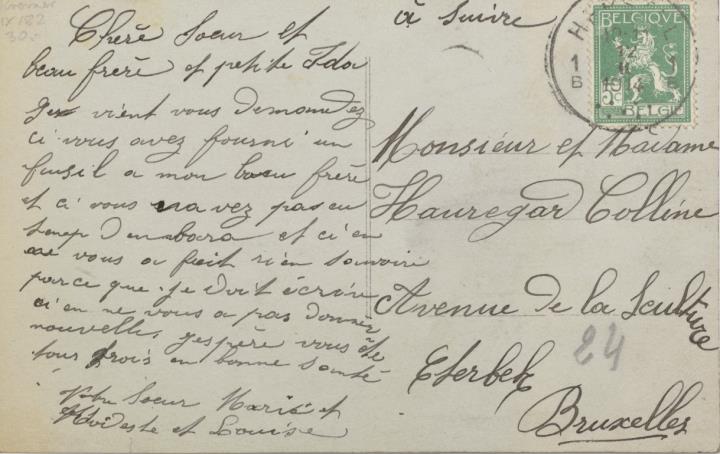 à suivre
Cherè soeur et
beau frèrè et petite Ida
vient vous demandez
ci vous avez fourni un
fusil a mon beau frèrè
et ci vous navez pas eu
et ci en
vous a fait rien savoire
parce que je doit écrire
ci en ne vous a pas donner
nouvelle, jespère vous ète
tous trois en bonne santé
Votre soeur Marie et
Modeste et Louise
BELGIQUE
BELGIË
1914
Monsieur et Madame
Hauregar Colline
Avenue de la Sculture
Eterbek
Bruxelles
24